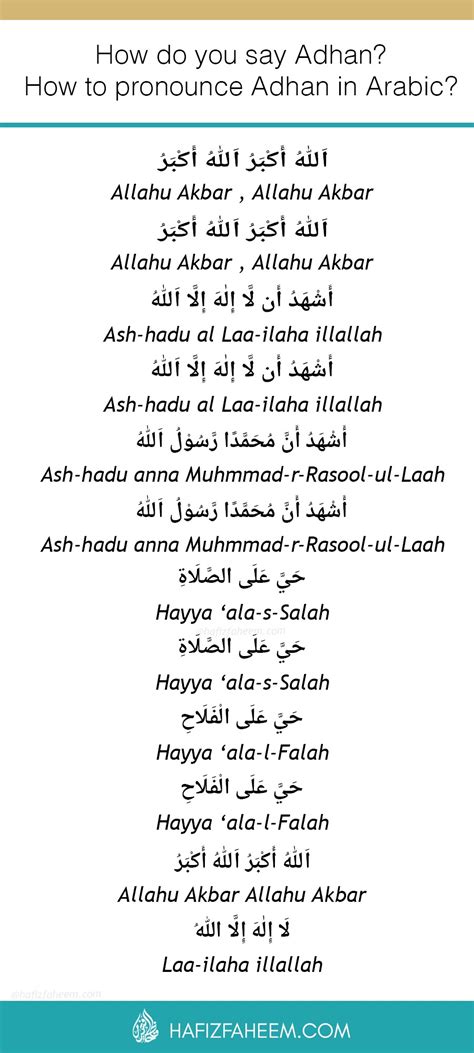 How do you say Adhan?
How to pronounce Adhan in Arabic?
اَللهُ أَكْبَرُ اَللهُ أَكْبَرُ
Allahu Akbar , Allahu Akbar
اَللهُ أَكْبَرُ اَللهُ أَكْبَرُ
Allahu Akbar , Allahu Akbar
أَشْهَدُ أَن لَّا إِلٰهَ إِلَّا اَللهُ
Ash-hadu al Laa-ilaha illallah
أَشْهَدُ أَن لَّا إِلٰهَ إِلَّا اَللهُ
Ash-hadu al Laa-ilaha illallah
أَشْهَدُ أَنَّ مُحَمَّدًا رَّسُوْلُ اَللهُ
Ash-hadu anna Muhmmad-r-Rasool-ul-Laah
أَشْهَدُ أَنَّ مُحَمَّدًا رَّسُوْلُ اَللهُ
Ash-hadu anna Muhmmad-r-Rasool-ul-Laah
حَيَّ عَلَى الصَّلَاةِ
Hayya ‘ala-s-Salah
@hafizfaheem.com
حَيَّ عَلَى الصَّلَاةِ
Hayya ‘ala-s-Salah
حَيَّ عَلَى الْفَلَاحِ
Hayya ‘ala-l-Falah
حَيَّ عَلَى الْفَلَاحِ
Hayya ‘ala-l-Falah
اَللهُ أَكْبَرُ اَللهُ أَكْبَرُ
Allahu Akbar Allahu Akbar
لَا إِلٰهَ إِلَّا اللهُ
Laa-ilaha illallah
@hafizfaheem.com
HAFIZFAHEEM.COM